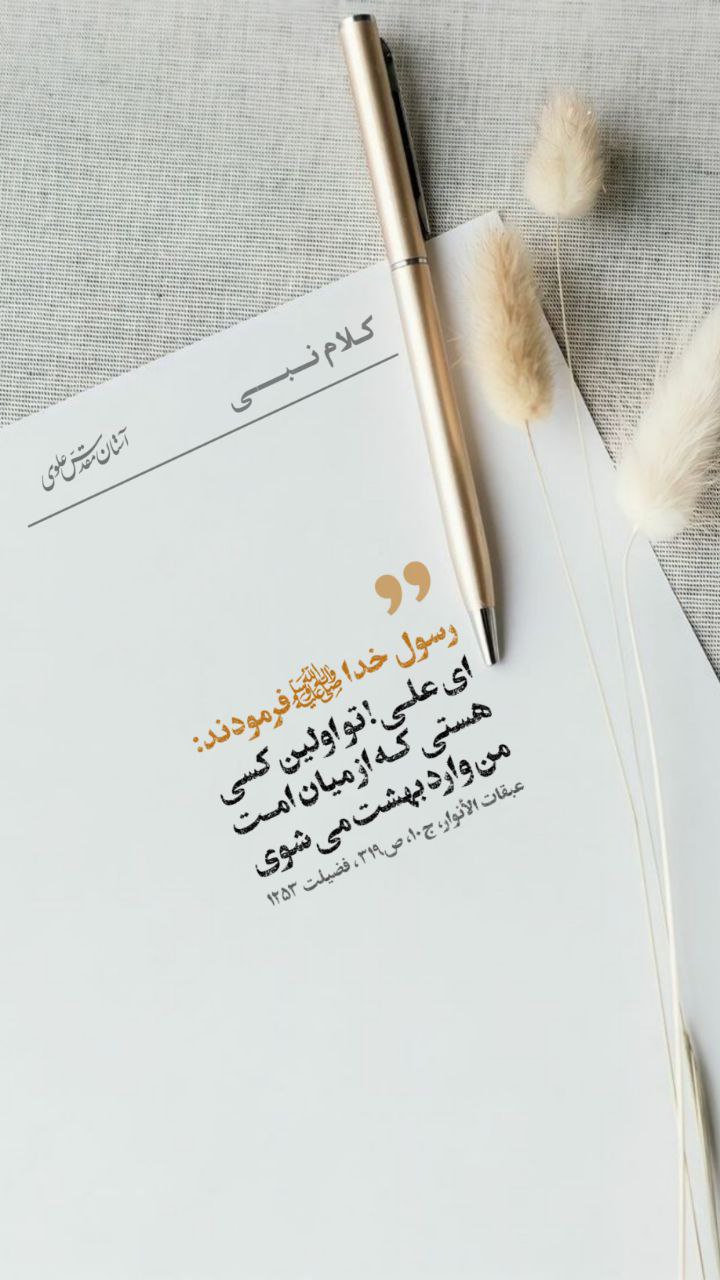 کلام نبی
آستان مقدس علوی
رسول خدا ﷺ فرمودند:
ای علی! تو اولین کسی
هستی که از میان امت
من وارد بهشت می شوی
عبقات الأنوار، ج۱۰، ص۳۱۹، فضیلت ۱۲۵۳